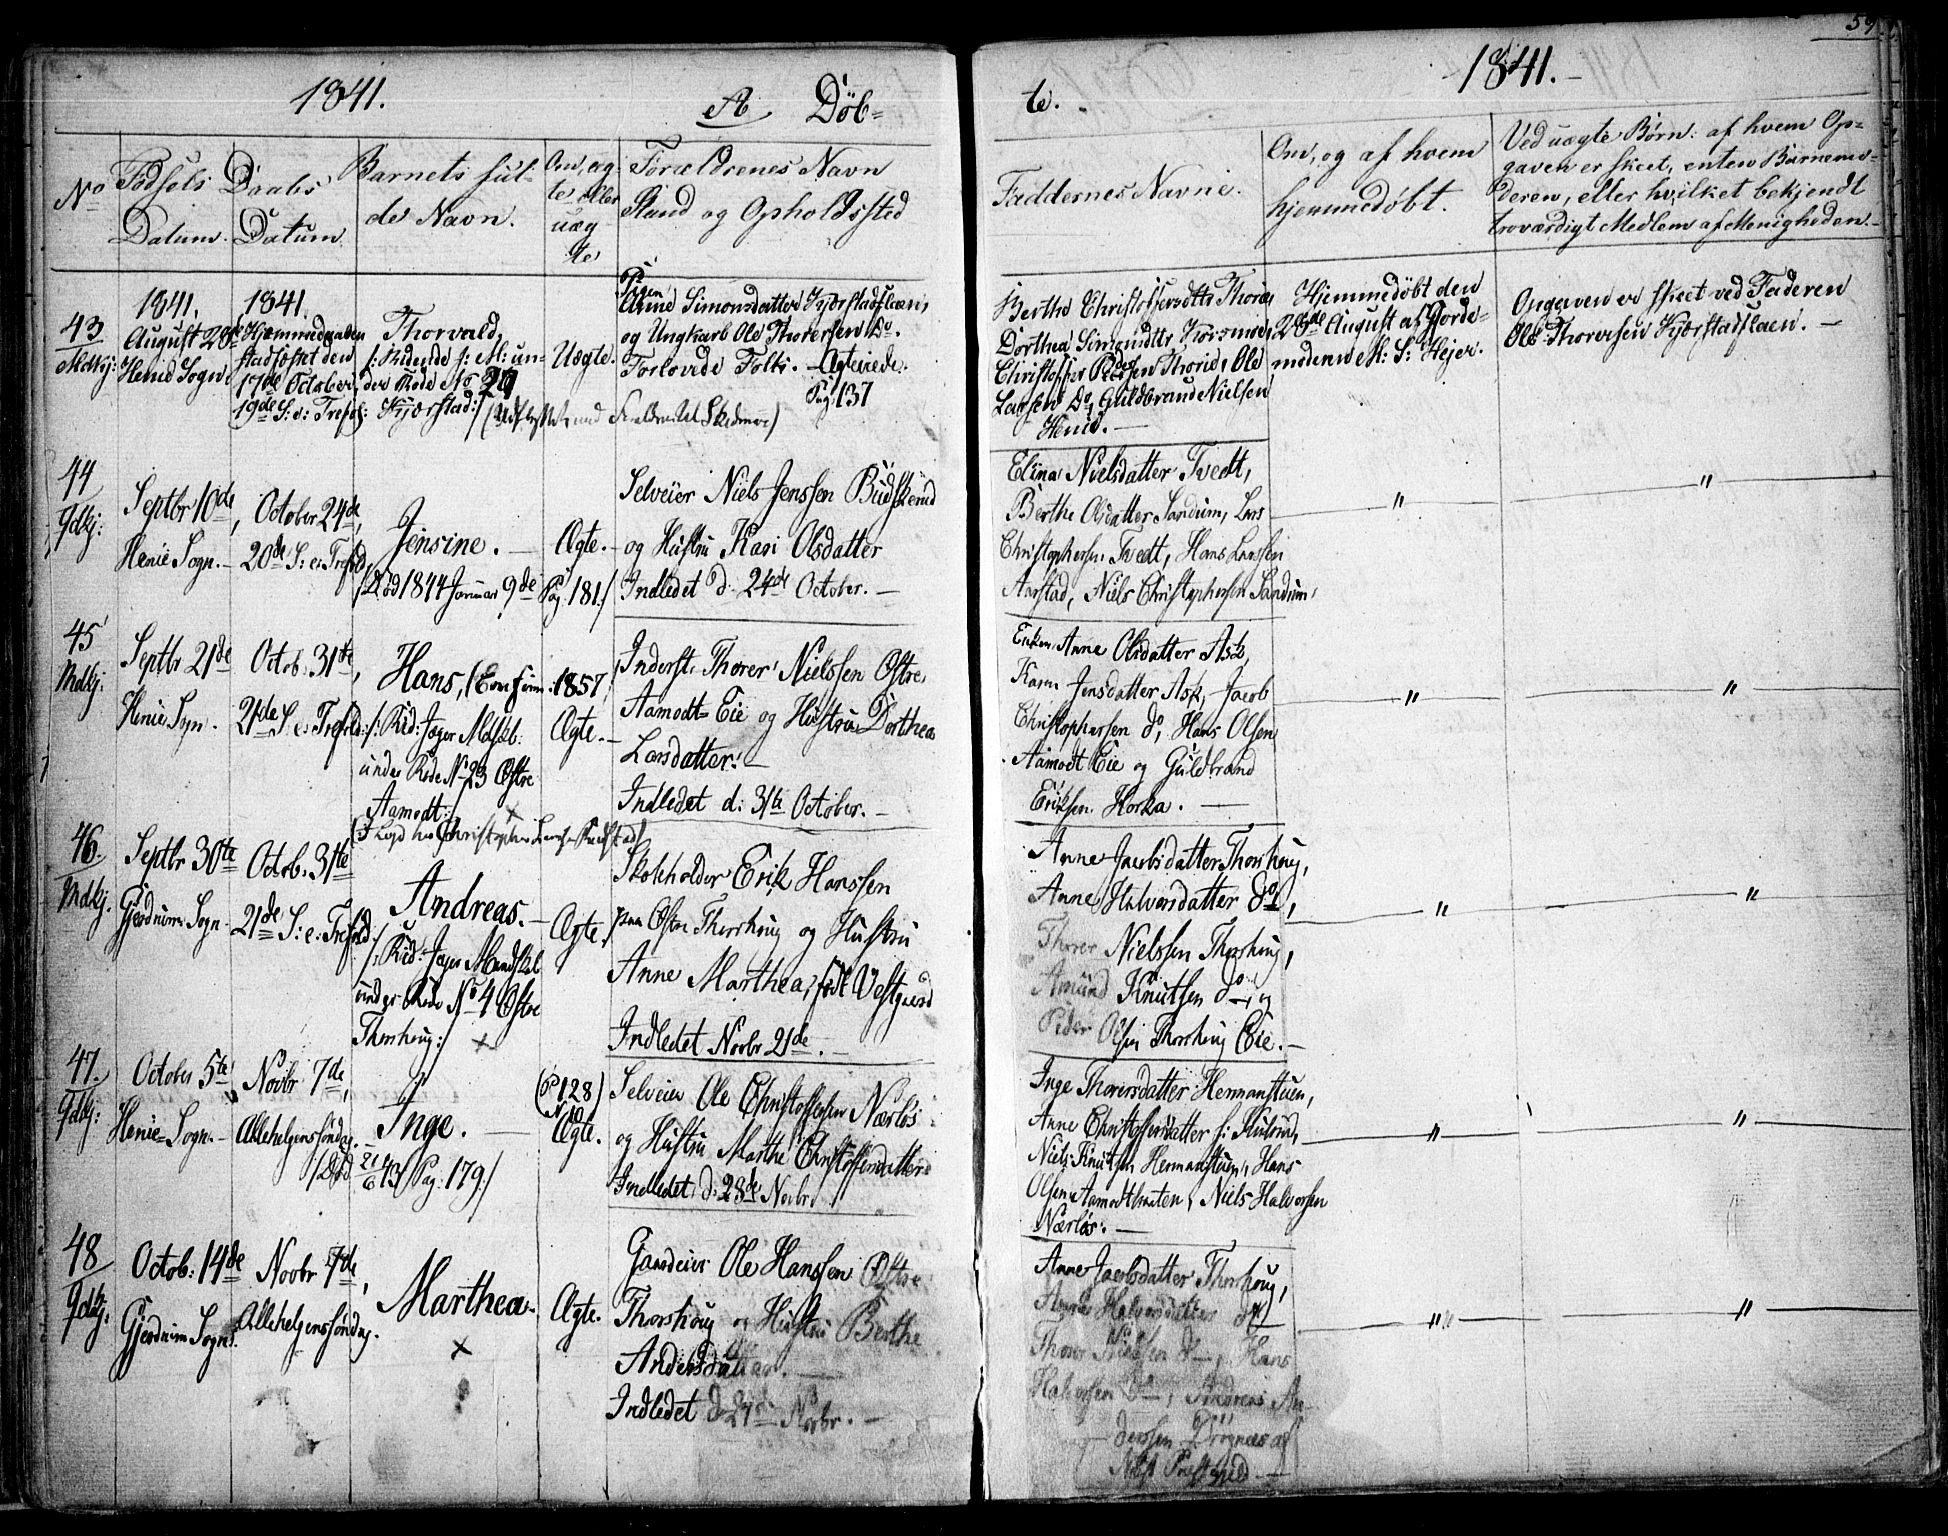 59
1841. A Døb=
te. 1841.
No
Fødsels
Datum.
Daabs
Datum
Barnets ful-
de Navn.
Om, æg-
te eller
uæg-
te
Forældrenes Navn
Stand og Opholdssted
Faddernes Navne.
Om, og af hvem
hjemmedøbt.
Ved uægte Børn: af hvem Op=
gaven er skeet, enten Barnemo-
deren, eller hvilket bekjendt
troværdigt Medlem af Menigheden.
43
Mdkj:
1841.
August 28de
Henie Sogn.
1841.
Hjemmedaaben
stadfæstet den
17de October,
19de S: e: Trefol:
Thorvald,
under Rode No 29
Kjærstad:/
Uægte.
Pigen
Anne Simonsdatter Kjærstadflaen,
og Ungkarl Ole Thoversen Do.
Forlovede Folk. - Ægteviede.
Pag 137
Berthe Christophersdtr Thorie,
Dorthea Simonsdtr
Christoffer Thorie, Ole
Larsen Do, Guldbrand Nielsen
Henie. -
Hjemmedøbt den
28de August af Jorde-
moderen M: S: Hejer.
Opgaven er skeet ved Faderen
Ole Thoresen Kjærstadflaen. -
44
Qdkj:
Septbr 10de,
Henie Sogn. -
October 24de,
20de S: e: Trefold,
Jensine. -
(Død 1844 Januar 9de Pag. 181./
Ægte. -
Selveier Niels Jenssen Budskend
og Hustru Kari Olsdatter
Indledet d. 24de October. -
Elina Nielsdatter Tvedt,
Berthe Olsdatter Sandum, Lars
Christophersen Tvedt, Hans Larssen
Aarstad, Niels Christophersen Sandum,
"
"
45
Mdkj.
Septbr 21de
Henie Sogn.
Octob: 31te,
21de S. e: Trefold:
Hans, (Conf. 1857)
/: Rid: Jæger Mdskb:
under Rode No 23 Østre
Aamodt:/
Ægte. -
Inderst: Thorer Nielssen Østre
Aamodt=Eie og Hustru Dorthea
Larsdatter: -
Indledet d: 31te October. -
Enken Anne Olsdatter Ask,
Karen Jensdatter Ask, Jacob
Christophersen do, Hans Olsen
Aamodt Eie og Guldbrand
Eriksen Horka. -
"
"
46.
Mdkj.
Septbr 30te
Gjerdrum Sogn.
Octob: 31te
21de S: e: Trefold:
Andreas. -
/: Rid: Jæger Mandskab
under Rode No 4 Østre
Thorshoug:/ x
Ægte.
Skoleholder Erik Hanssen
paa Østre Thorshoug og Hustru
Anne Marthea, født Vestgaard
Indledet Novbr 21de. -
Anne Jacobsdatter Thorshoug,
Anne Halvorsdatter do,
Thorer Nielssen Thorshoug,
Amund Knutsen do, og
Peder Olsen Thorshoug Eie. -
"
"
47.
Qdkj:
October 5te,
Henie=Sogn. -
Novbr 7de,
Allehelgenssøndag. -
Inge.
/Død 21/6 43 (Pag: 179./
(P 128)
Ægte.
Selveier Ole Christoffersen Nærløs
og Hustru Marthe Christoffersdatter
Indledet d: 28de Novbr.
Inge Thorersdatter Hermanstuen,
Anne Christoffersdatter
Niels Knutsen Hermanstuen, Hans
Olsen Aamodtbraten, Niels Halvorsen
Nærløs. -
"
"
48
Qdkj:
Octob: 14de
Gjerdrum Sogn.
Novbr 7de,
Allehelgenssøndag.
Marthea.
x
Ægte.
Gaardeier Ole Hanssen Østre
Thorshoug og Hustru Berthe
Andersdatter. -
Indledet d 21de Novbr. -
Anne Jacobsdatter Thorshoug,
Anne Halvorsdatter do,
Thorer Nielsen do, Hans
Halvorsen do, Andreas An-
derssen
"
"